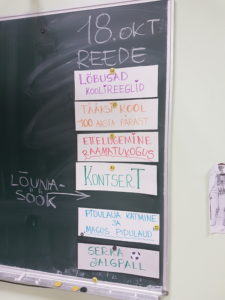 18. OKT
REEDE
LÕBUSAD
KOOLIREEGLID
TAAKSI KOOL
100 AASTA PÄRAST
ETTELUGEMINE
RAAMATUKOGUS
KONTSERT
LÕUNA-
SÖÖK
PIDULAUA KATMINE
JA
MAGUS PIDULAUD
SERKA
JALGPALL